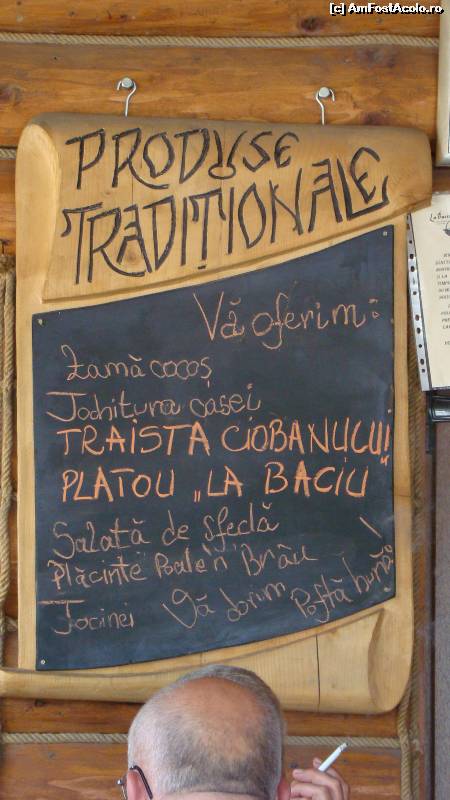 [c] AmFostAcolo.ro
PRODUSE
TRADIȚIONALE
Vă oferim:
Zamă cocoș
Tochitura casei
TRAISTA CIOBANULUI
PLATOU „LA BACIU"
Salată de sfeclă
Plăcinte Poale'n Brâu
Tocinei Vă dorim Poftă bună!